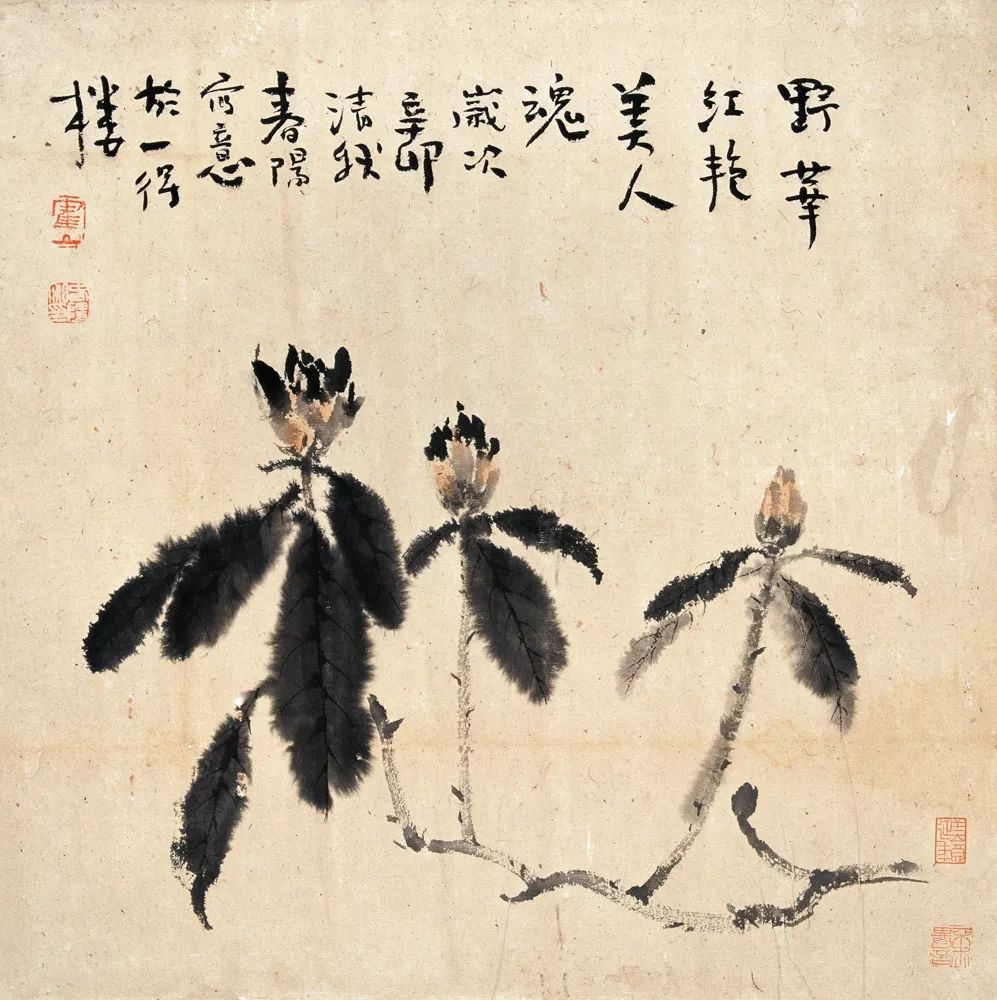 野華
红艳
美人
魂
歲次
辛卯
清秋
春陽
写意
於一得
樓